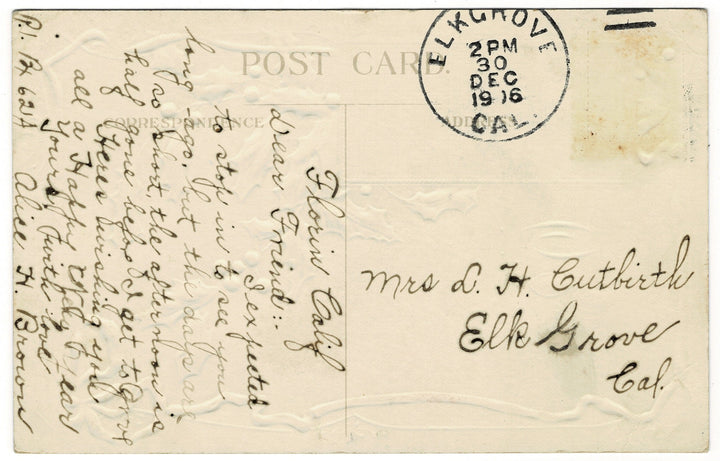 POST CARD.
CORRESPONDENCE
ADDRESS
ELK GROVE
2 PM
30
DEC
1916
CAL.
Florin Calif
Dear Friend:-
I expected
to stop in to see you
long ago, but the days are
so short, the afternoon is
half gone before I get to Grove
Heres wishing you
all a Happy New Year
Yours, with love
Alice H. Brown
R.1. Bx 62A
Mrs D. H. Cutbirth
Elk Grove
Cal.